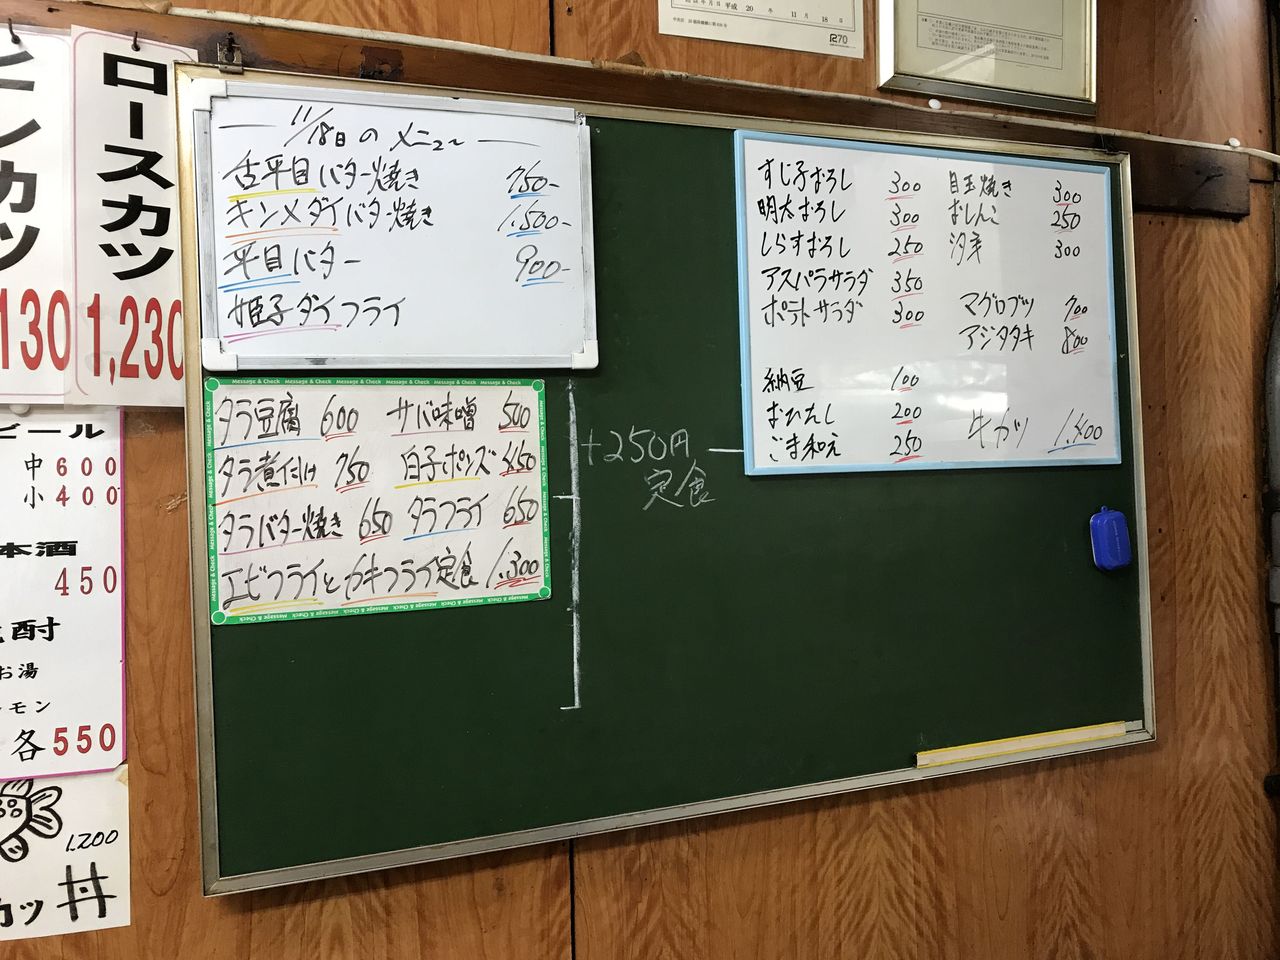 ロースカツ
1,230
130
ビール
中 600
小 400
450
お湯
各 550
1,200
カツ丼
平成 20 年 11 月 18 日
R70
11/18日のメニュー
舌平目バター焼き 750-
キンメダイバター焼き 1,500-
平目バター 900-
姫子ダイフライ
Message & Check
タラ豆腐 600 サバ味噌 500
タラ煮付け 750 白子ポンズ 450
タラバター焼き 650 タラフライ 650
エビフライとカキフライ定食 1,300
+250円
定食
すじ子おろし 300 目玉焼き 300
明太おろし 300 おしんこ 250
しらすおろし 250 300
アスパラサラダ 350
ポテトサラダ 300 マグロブツ 700
アジタタキ 800
納豆 100
おひたし 200 牛カツ 1,400
ごま和え 250